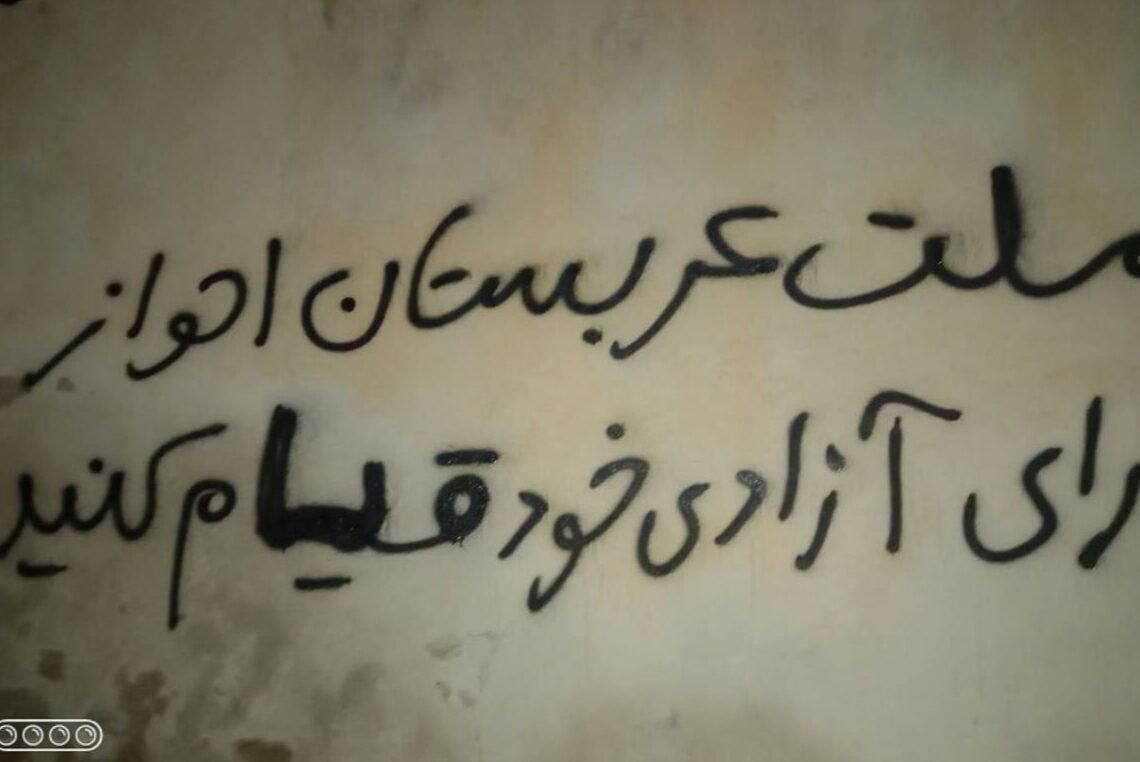 ملت عربستان احواز
رای آزادی خود قیام کنید